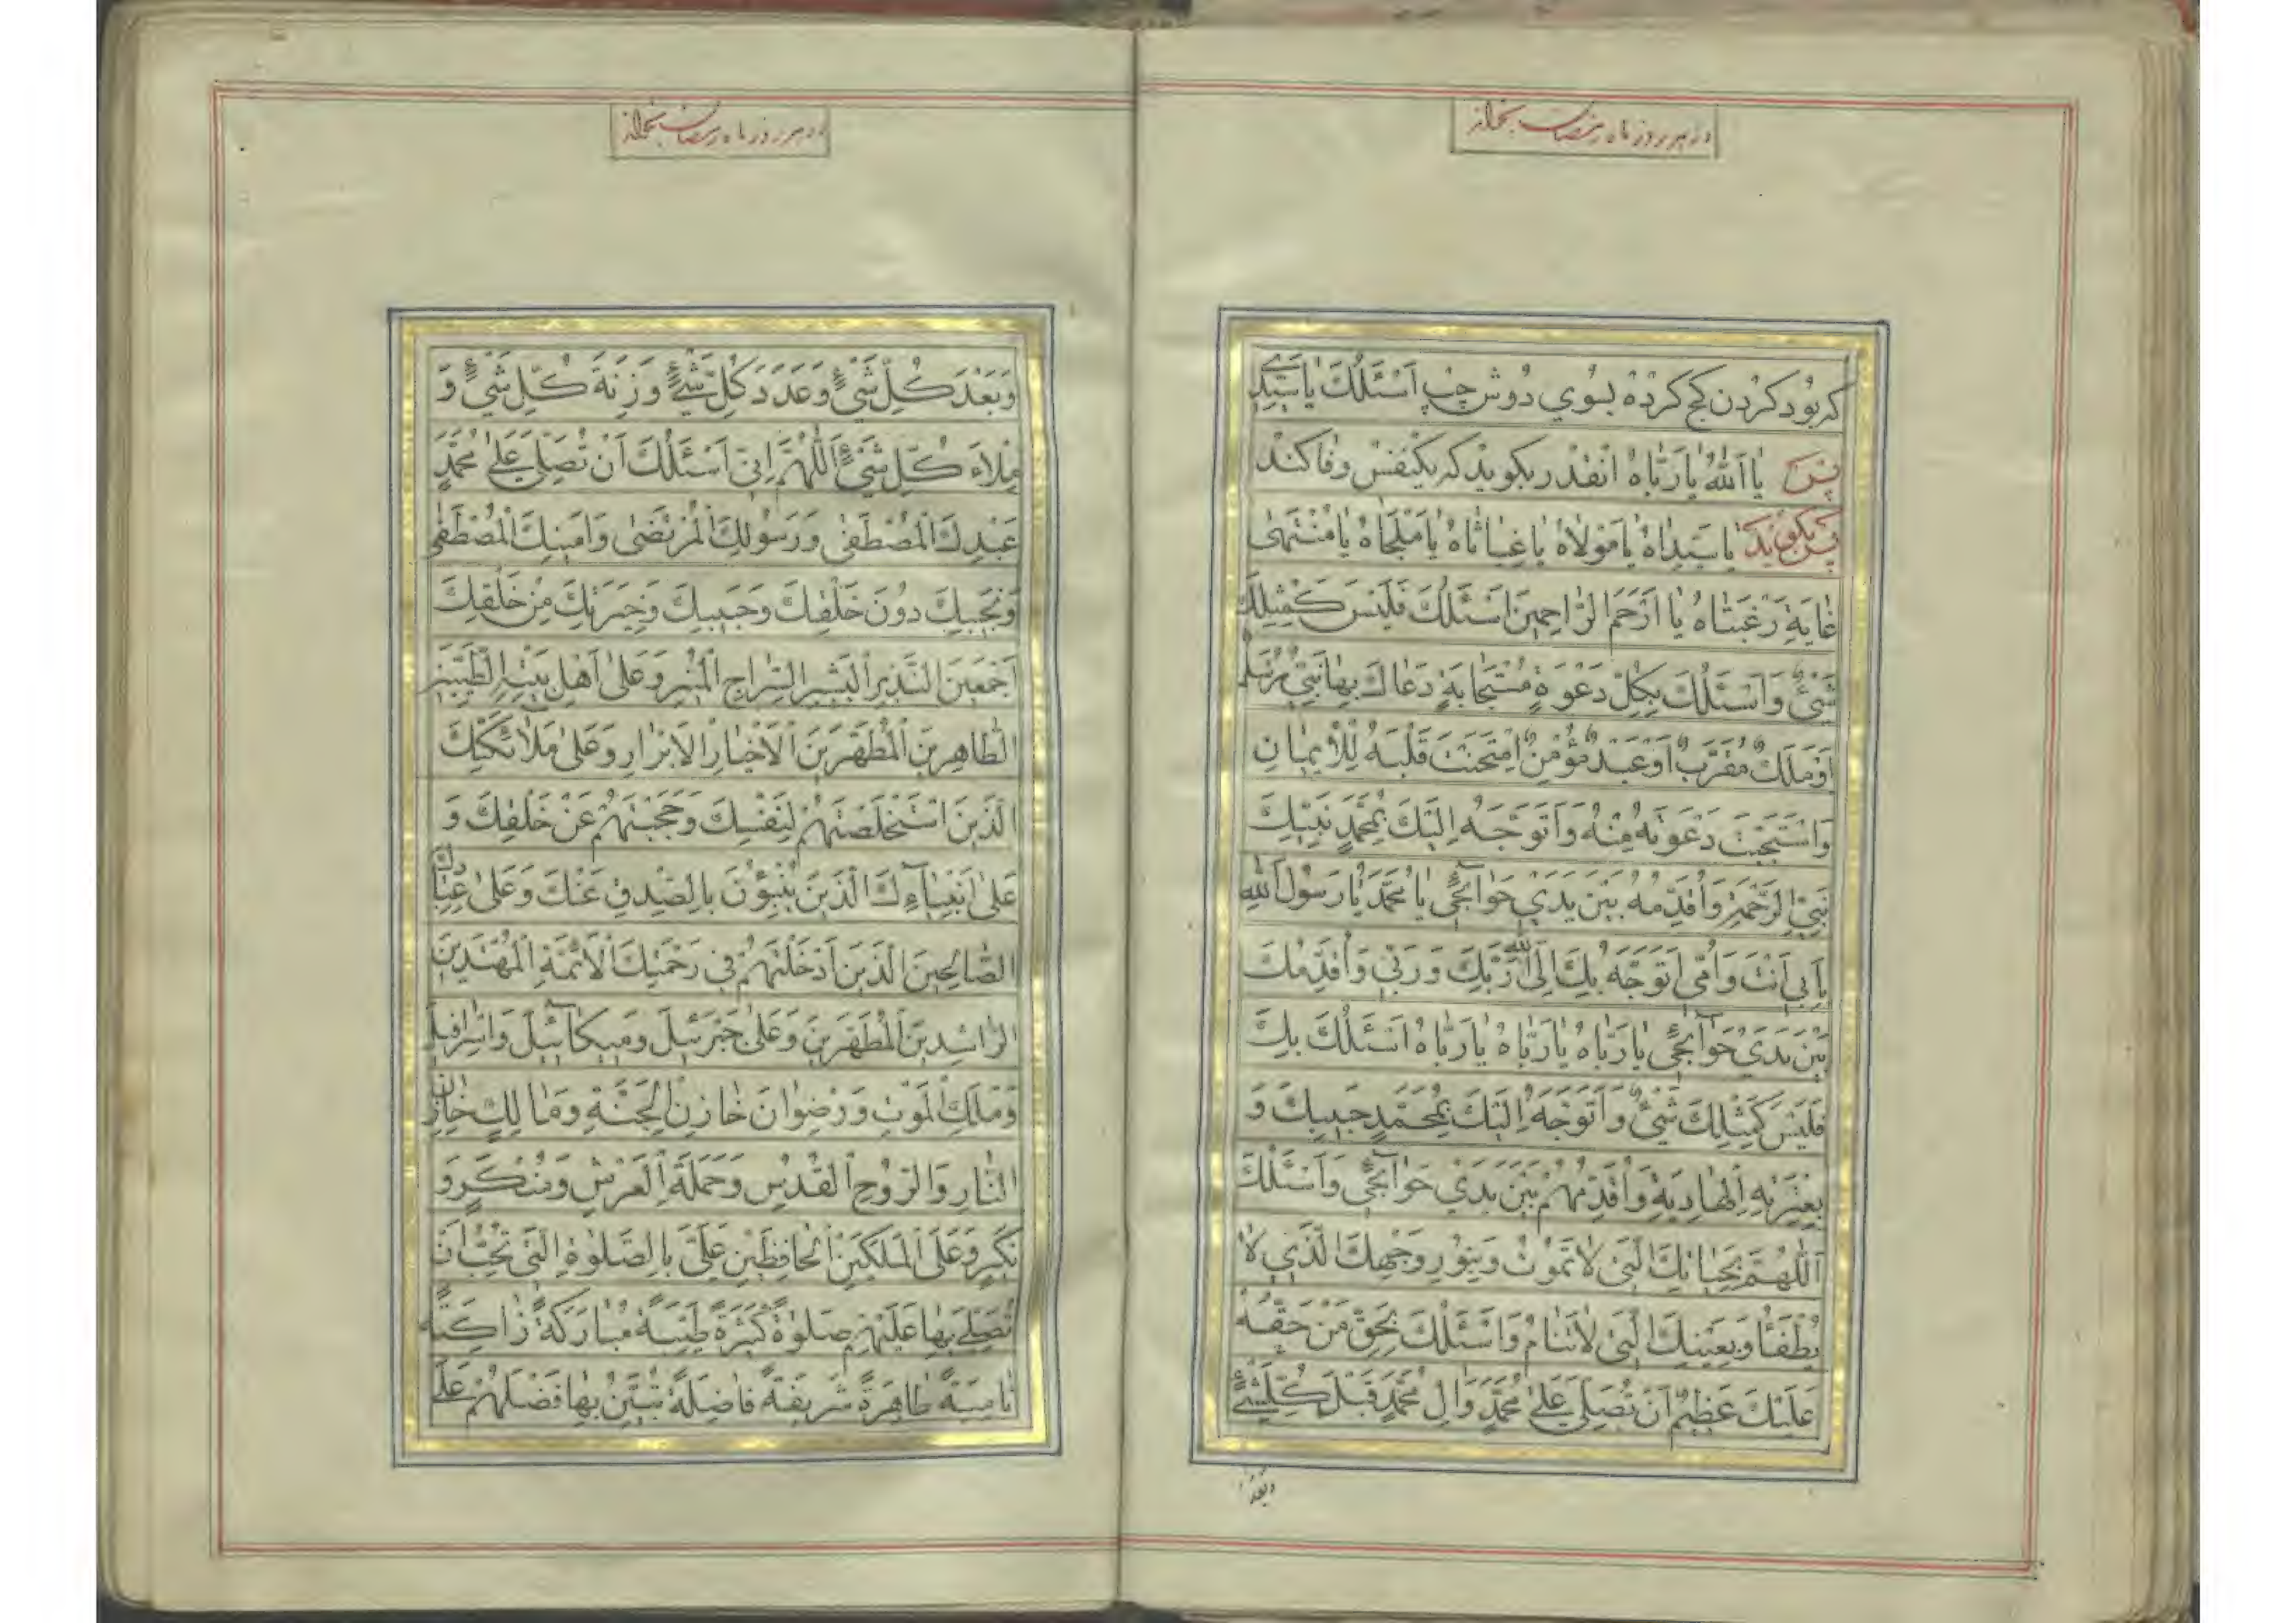 در هر روز ماه رمضان بخواند
که بود کردن کج کرده بسوي دوش چپ اَسْئَلُكَ يا سَيِّدي
پس يا اَللهُ يا رَبّاهُ انقدر بکويد که بکنفس وفا کند
پس بکويد يا سَيِّداهُ يا مَوْلاهُ يا غِياثاهُ يا مَلْجَاهُ يا مُنْتَهى
غايَةِ رَغْبَتاهُ يا اَرْحَمَ الرّاحِمينَ اَسْئَلُكَ فَلَيْسَ كَمِثْلِكَ
شَيْئٌ وَاَسْئَلُكَ بِكُلِّ دَعْوَةٍ مُسْتَجابَةٍ دَعاكَ بِها نَبِيٌّ مُرْسَلٌ
اَوْ مَلَكٌ مُقَرَّبٌ اَوْ عَبْدٌ مُؤْمِنٌ اِمْتَحَنْتَ قَلْبَهُ لِلْاِيمانِ
وَاسْتَجَبْتَ دَعْوَتَهُ مِنْهُ وَاَتَوَجَّهُ اِلَيْكَ بِمُحَمَّدٍ نَبِيِّكَ
نَبِيِّ الرَّحْمَةِ وَاُقَدِّمُهُ بَيْنَ يَدَيْ حَوآئِجي يا مُحَمَّدُ يا رَسُولَ اللهِ
بِاَبي اَنْتَ وَاُمّي اَتَوَجَّهُ بِكَ اِلَى اللهِ رَبِّكَ وَرَبّي وَاُقَدِّمُكَ
بَيْنَ يَدَيْ حَوآئِجي يا رَبّاهُ يا رَبّاهُ يا رَبّاهُ اَسْئَلُكَ بِكَ
فَلَيْسَ كَمِثْلِكَ شَيْئٌ وَاَتَوَجَّهُ اِلَيْكَ بِمُحَمَّدٍ حَبيبِكَ وَ
بِعِتْرَتِهِ الْهادِيَةِ وَاُقَدِّمُهُمْ بَيْنَ يَدَيْ حَوآئِجي وَاَسْئَلُكَ
اَللّهُمَّ بِحَياتِكَ الَّتي لا تَمُوتُ وَبِنُورِ وَجْهِكَ الَّذي لا
يُطْفَأُ وَبِعَيْنِكَ الَّتي لا تَنامُ وَاَسْئَلُكَ بِحَقِّ مَنْ حَقُّهُ
عَلَيْكَ عَظيمٌ اَنْ تُصَلِّيَ عَلى مُحَمَّدٍ وَالِ مُحَمَّدٍ قَبْلَ كُلِّ شَيْئٍ
وبعد
در هر روز ماه رمضان بخواند
وَبَعْدَ كُلِّ شَيْئٍ وَعَدَدَ كُلِّ شَيْئٍ وَزِنَةَ كُلِّ شَيْئٍ وَ
مِلْاءَ كُلِّ شَيْئٍ اَللّهُمَّ اِنّي اَسْئَلُكَ اَنْ تُصَلِّيَ عَلى مُحَمَّدٍ
عَبْدِكَ الْمُصْطَفى وَرَسُولِكَ الْمُرْتَضى وَاَمينِكَ الْمُصْطَفى
وَنَجيبِكَ دُونَ خَلْقِكَ وَحَبيبِكَ وَخِيَرَتِكَ مِنْ خَلْقِكَ
اَجْمَعينَ النَّذيرِ الْبَشيرِ السِّراجِ الْمُنيرِ وَعَلى اَهْلِ بَيْتِهِ الطَّيِّبينَ
الطّاهِرينَ الْمُطَهَّرينَ الْاَخْيارِ الْاَبْرارِ وَعَلى مَلآئِكَتِكَ
الَّذينَ اسْتَخْلَصْتَهُمْ لِنَفْسِكَ وَحَجَبْتَهُمْ عَنْ خَلْقِكَ وَ
عَلى اَنْبِيآءِكَ الَّذينَ يُنْبِؤُنَ بِالصِّدْقِ عَنْكَ وَعَلى عِبادِكَ
الصّالِحينَ الَّذينَ اَدْخَلْتَهُمْ في رَحْمَتِكَ الْاَئِمَّةِ الْمُهْتَدينَ
الرّاشِدينَ الْمُطَهَّرينَ وَعَلى جَبْرَئيلَ وَميكآئيلَ وَاِسْرافيلَ
وَمَلَكِ الْمَوْتِ وَرِضْوانَ خازِنِ الْجَنَّةِ وَمالِكٍ خازِنِ
النّارِ وَالرُّوحِ الْقُدُسِ وَحَمَلَةِ الْعَرْشِ وَمُنْكَرٍ وَ
نَكيرٍ وَعَلَى الْمَلَكَيْنِ الْحافِظَيْنِ عَلَيَّ بِالصَّلوةِ الَّتي تُحِبُّ اَنْ
تُصَلِّيَ بِها عَلَيْهِمْ صَلوةً كَثيرَةً طَيِّبَةً مُبارَكَةً زاكِيَةً
نامِيَةً طاهِرَةً شَريفَةً فاضِلَةً تُبَيِّنُ بِها فَضْلَهُمْ عَلَى